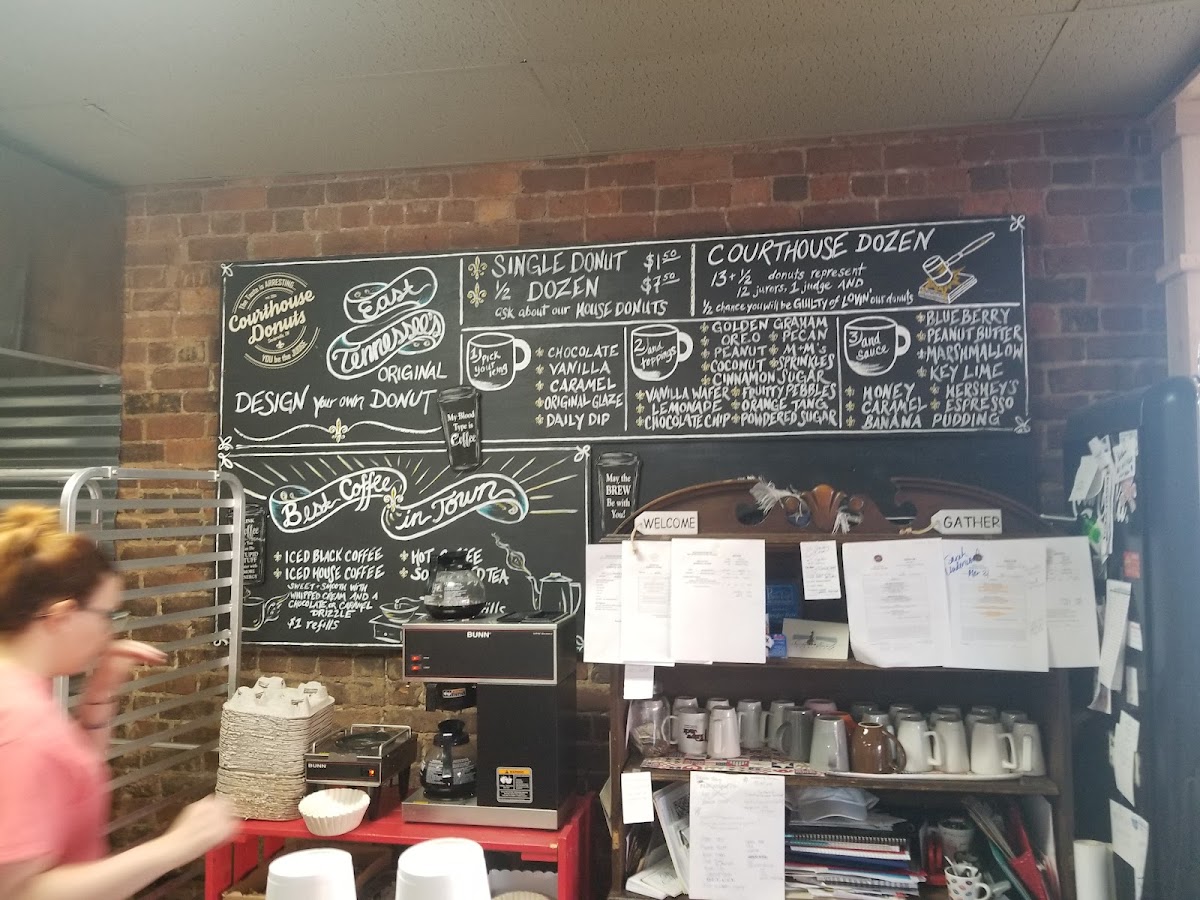 The Taste is ARRESTING
Courthouse
Donuts
YOU be the JUDGE
East
Tennessee's
ORIGINAL
DESIGN your own DONUT
SINGLE DONUT $1.50
1/2 DOZEN $7.50
ask about our HOUSE DONUTS
COURTHOUSE DOZEN
13 + 1/2 donuts represent
12 jurors, 1 judge AND
1/2 chance you will be GUILTY of LOVIN' our donuts
1) pick
your icing
CHOCOLATE
VANILLA
CARAMEL
ORIGINAL GLAZE
DAILY DIP
2) and
toppings
GOLDEN GRAHAM
OREO PECAN
PEANUT M+M's
COCONUT SPRINKLES
CINNAMON SUGAR
VANILLA WAFER FRUITY PEBBLES
LEMONADE ORANGE TANG
CHOCOLATE CHIP POWDERED SUGAR
3) and
sauce
BLUEBERRY
PEANUT BUTTER
MARSHMALLOW
KEY LIME
HONEY HERSHEY'S
CARAMEL ESPRESSO
BANANA PUDDING
My Blood
Type is
Coffee
May the
BREW
Be with
You!
Best Coffee
in Town
ICED BLACK COFFEE
ICED HOUSE COFFEE
SWEET + SMOOTH WITH
WHIPPED CREAM AND A
CHOCOLATE OR CARAMEL
DRIZZLE
$1 refills
HOT
TEA
WELCOME
GATHER
BUNN
BUNN